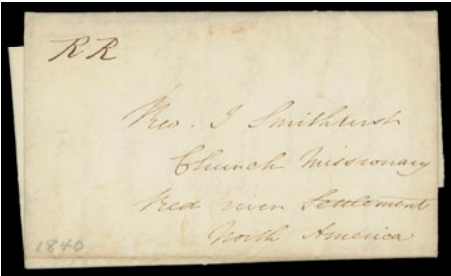 RR
Rev. J Smithurst
Church Missionary
Red river Settlement
North America
1840